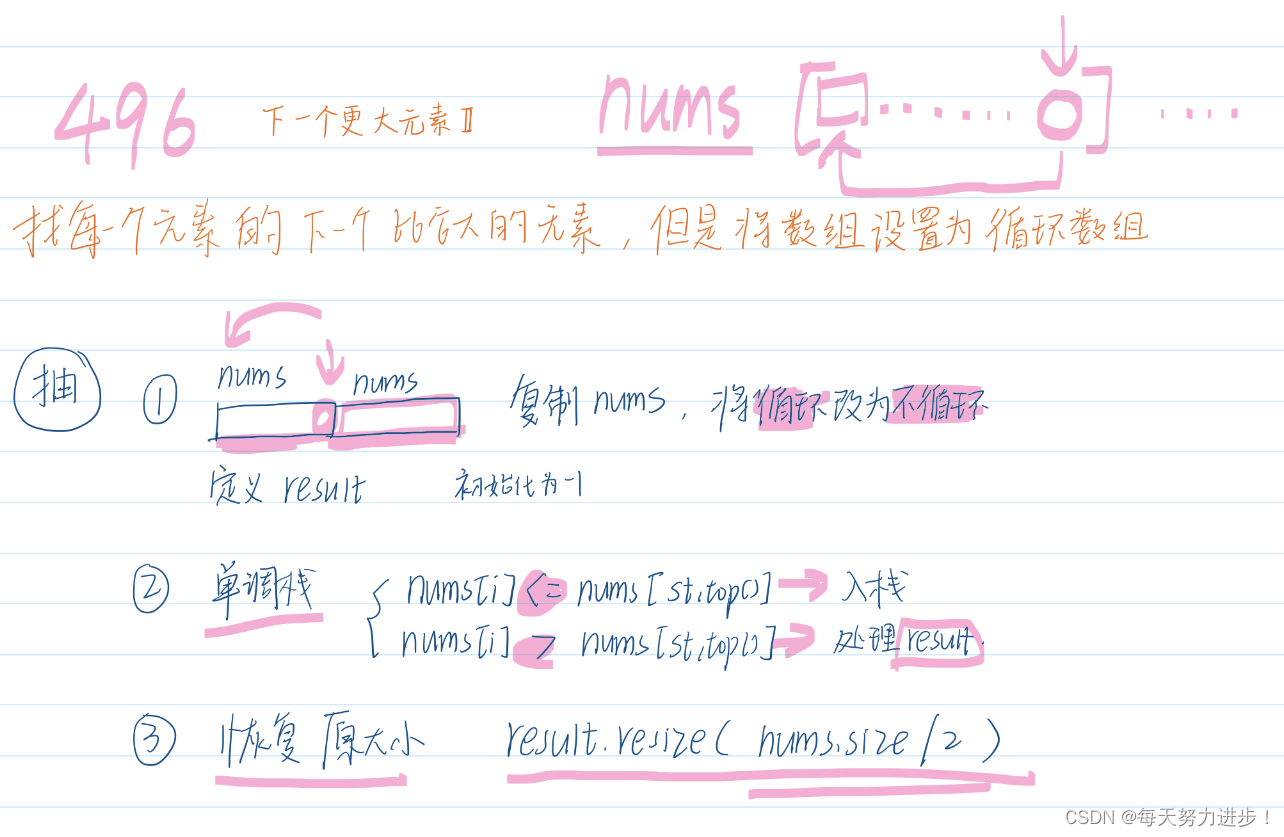 496 下一个更大元素Ⅱ nums [口······o] ····
找每一个元素的下一个比它大的元素，但是将数组设置为循环数组
抽 ① nums nums 复制 nums，将循环改为不循环
定义 result 初始化为-1
② 单调栈 { nums[i] <= nums[st.top()] → 入栈
nums[i] > nums[st.top()] → 处理 result.
③ 恢复原大小 result.resize( nums.size / 2 )
CSDN @每天努力进步！